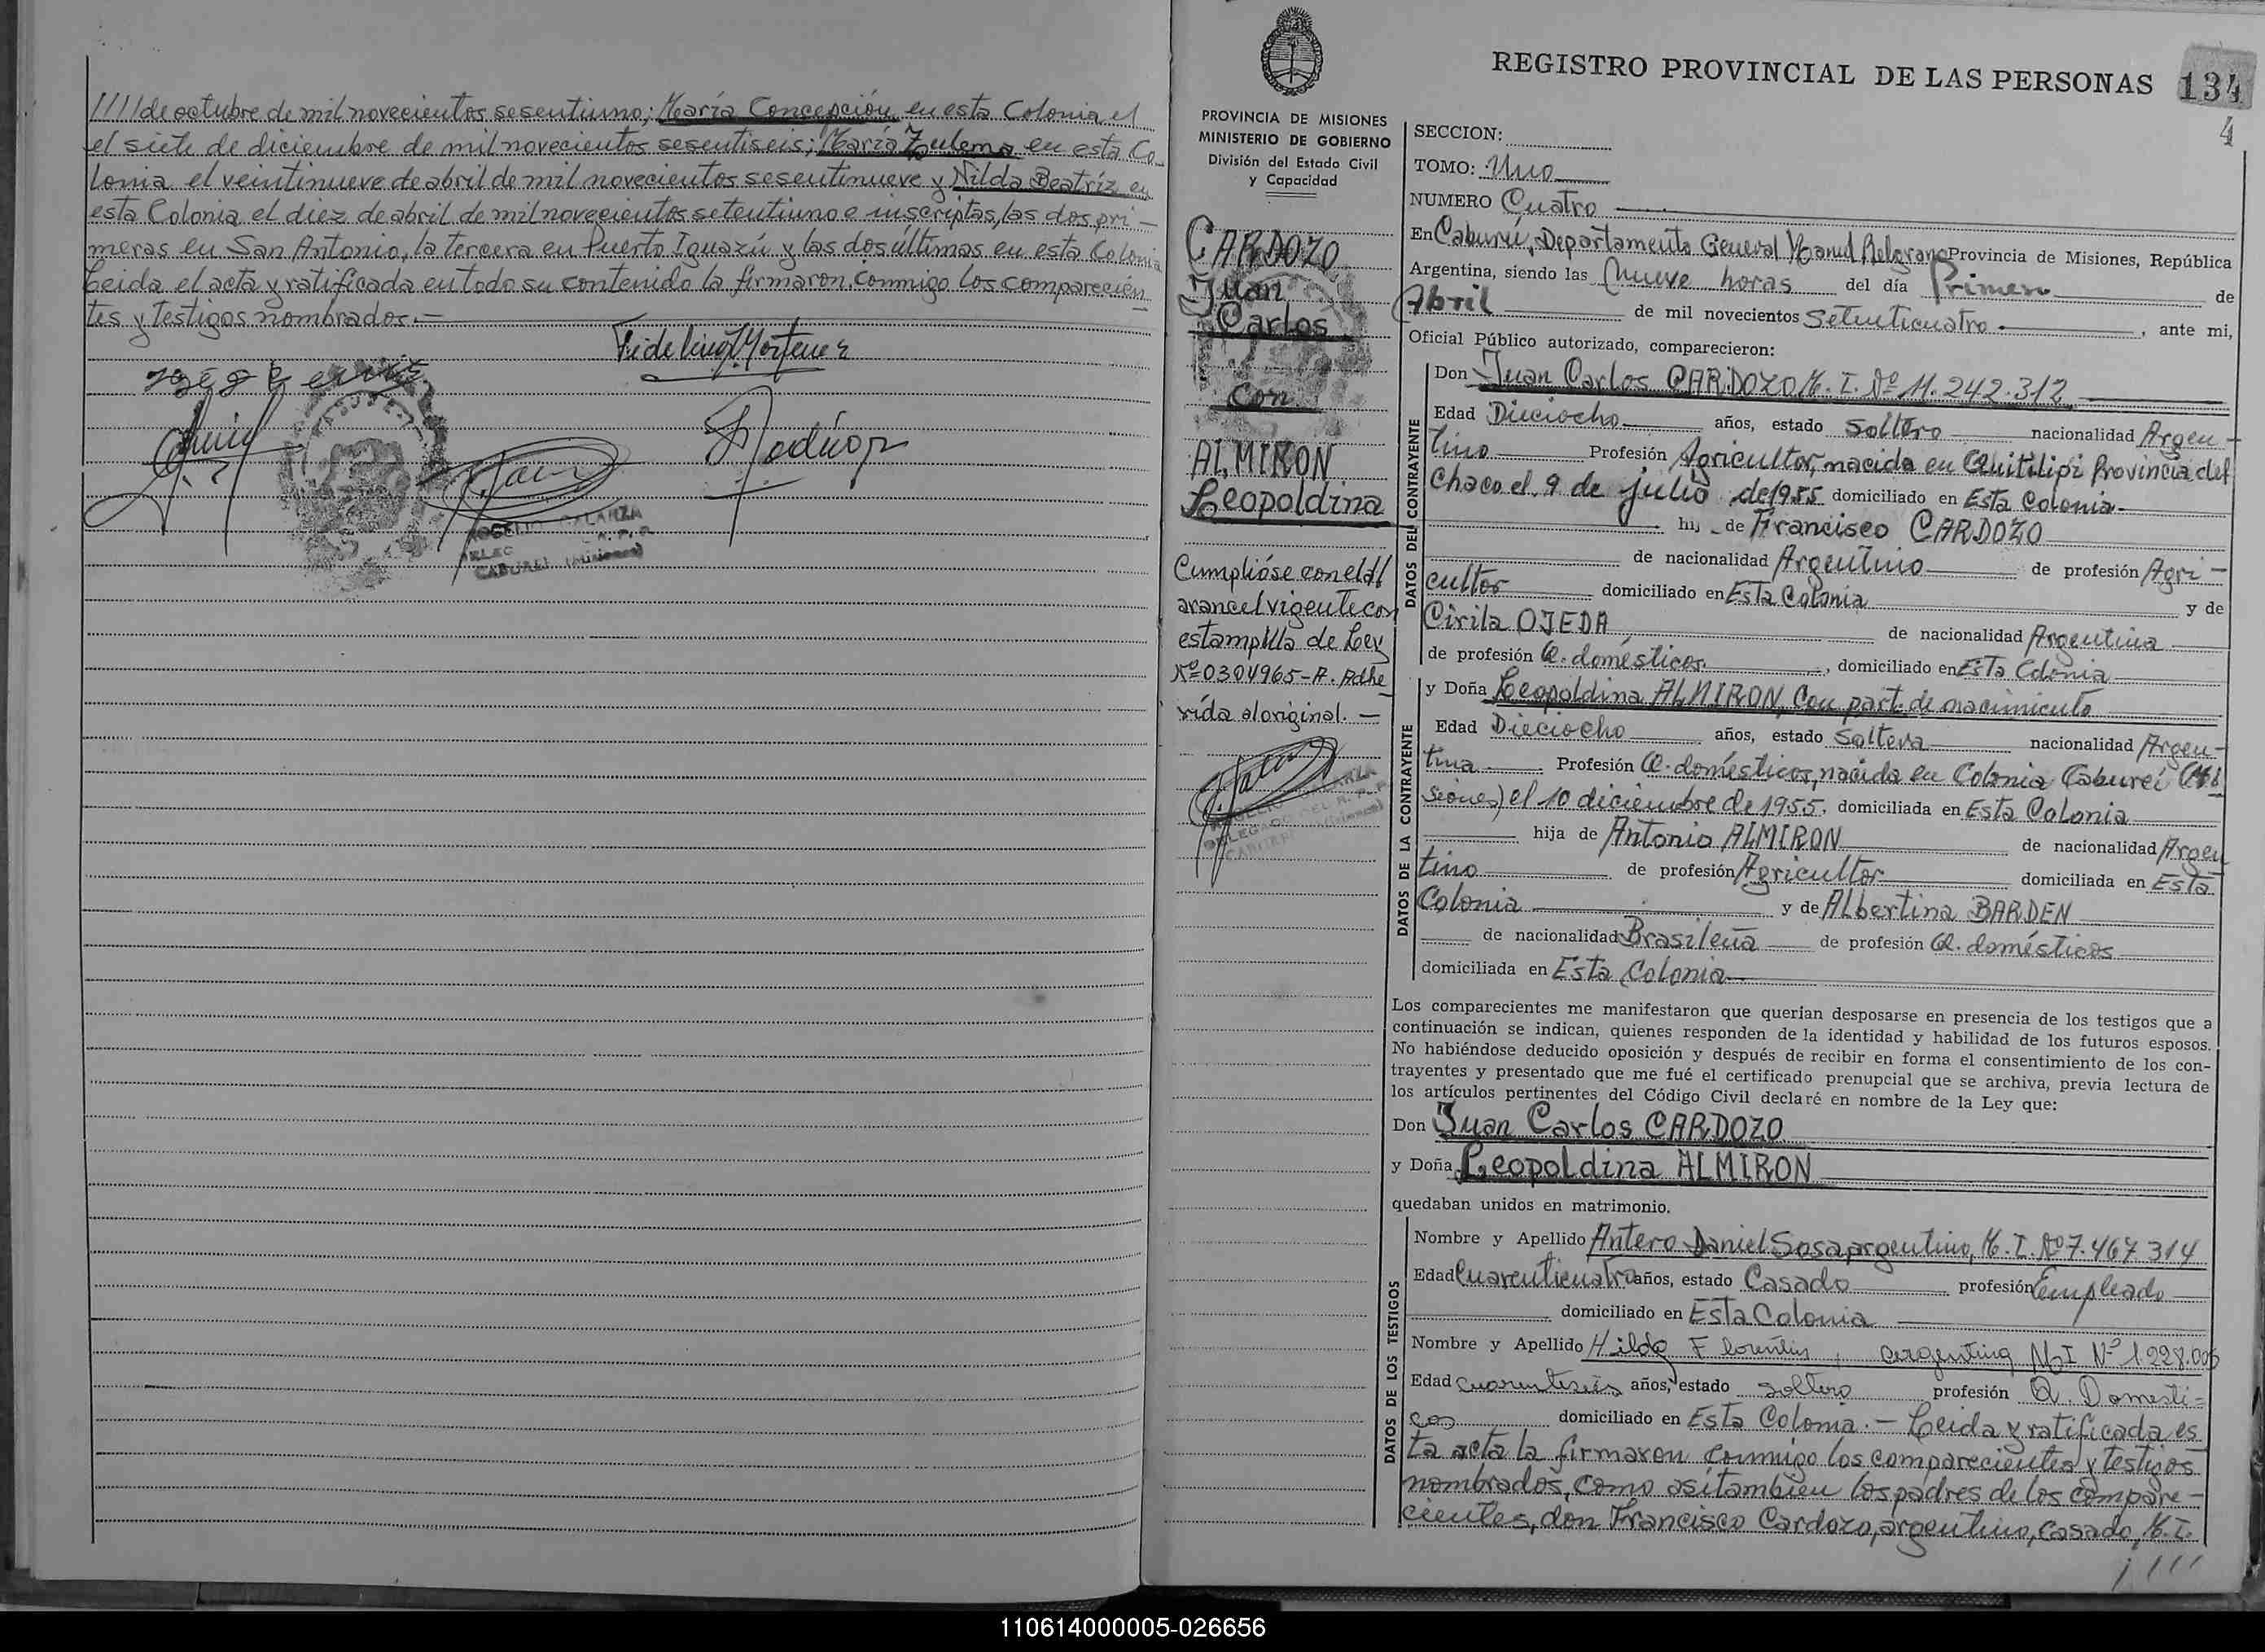 ////de octubre de mil novecientos sesentiuno; María Concepción en esta Colonia el
el siete de diciembre de mil novecientos sesentiseis; María Zulema en esta Co_
lonia el veintinueve de abril de mil novecientos sesentinueve y Nilda Beatríz en
esta Colonia el diez de abril de mil novecientos setentiuno e inscriptas, las dos pri-
meras en San Antonio, la tercera en Puerto Iguazú y las dos últimas en esta Colonia
Leida el acta y ratificada en todo su contenido la firmaron conmigo los comparecien
tes y testigos nombrados.—
ROGELIO GALARZA
CABUREI (Misiones)
REGISTRO PROVINCIAL DE LAS PERSONAS 134
4
PROVINCIA DE MISIONES
MINISTERIO DE GOBIERNO
División del Estado Civil
y Capacidad
CARDOZO
Juan
Carlos
Con
ALMIRON
Leopoldina
Cumplióse con el
arancel vigente con
estampilla de Ley
Nº 0304965-A. Adhe_
rida al original.—
SECCION:
TOMO: Uno
NUMERO Cuatro
En Cabureí, Departamento General Manuel Belgrano Provincia de Misiones, República
Argentina, siendo las nueve horas del día Primero de
Abril de mil novecientos Setenticuatro, ante mi,
Oficial Público autorizado, comparecieron:
DATOS DEL CONTRAYENTE
Don Juan Carlos CARDOZO M. I. Nº 11.242.312
Edad Dieciocho años, estado Soltero nacionalidad Argen-
tino Profesión Agricultor, nacido en Quitilipi Provincia del
Chaco el 9 de julio de 1955 domiciliado en Esta Colonia
hij de Francisco CARDOZO
de nacionalidad Argentino de profesión Agri-
cultor domiciliado en Esta Colonia y de
Cirila OJEDA de nacionalidad Argentina
de profesión Q. domésticos, domiciliado en Esta Colonia
DATOS DE LA CONTRAYENTE
y Doña Leopoldina ALMIRON, Con part. de nacimiento
Edad Dieciocho años, estado Soltera nacionalidad Argen-
tina Profesión Q. domésticos, nacida en Colonia Cabureí (Mi
siones) el 10 diciembre de 1955, domiciliada en Esta Colonia
hija de Antonio ALMIRON de nacionalidad Argen
tino de profesión Agricultor domiciliada en Esta
Colonia y de Albertina BARDEN
de nacionalidad Brasileña de profesión Q. domésticos
domiciliada en Esta Colonia
Los comparecientes me manifestaron que querían desposarse en presencia de los testigos que a
continuación se indican, quienes responden de la identidad y habilidad de los futuros esposos.
No habiéndose deducido oposición y después de recibir en forma el consentimiento de los con-
trayentes y presentado que me fué el certificado prenupcial que se archiva, previa lectura de
los artículos pertinentes del Código Civil declaré en nombre de la Ley que:
Don Juan Carlos CARDOZO
y Doña Leopoldina ALMIRON
quedaban unidos en matrimonio.
DATOS DE LOS TESTIGOS
Nombre y Apellido Antero Daniel Sosa, argentino, M. I. Nº 7.467.314
Edad Cuarenticuatro años, estado Casado profesión Empleado
domiciliado en Esta Colonia
Nombre y Apellido Hilda Florentin, argentina M I Nº 1.228.006
Edad cuarentiseis años, estado soltero profesión Q. Domesti-
cos domiciliado en Esta Colonia.— Leida y ratificada es
ta acta la firmaron conmigo los comparecientes y testigos
nombrados, como asítambien los padres de los compare-
cientes, don Francisco Cardozo, argentino, casado, M. I.
////
110614000005-026656